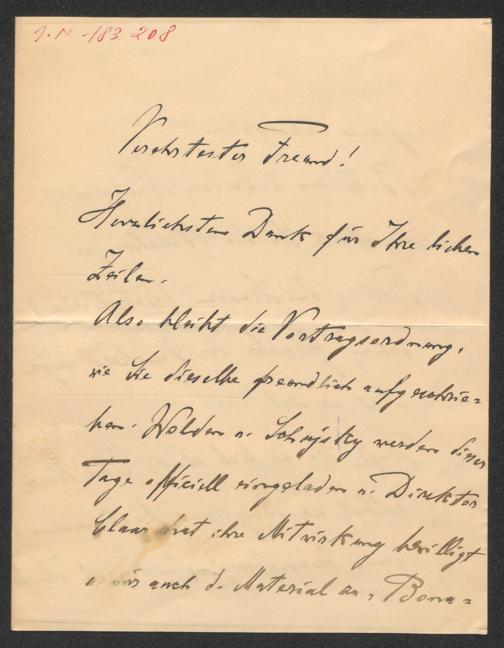 I. N. 183.208
Verehrtester Freund!
Herzlichsten Dank für Ihre lieben
Zeilen.
Also bleibt die Vortragsordnung,
wie Sie dieselbe freundlich aufgeschrie-
ben. Wolden u. werden dieser
Tage officiell eingeladen u. Direktor
Claar hat ihre Mitwirkung bewilligt
auch d. Material an